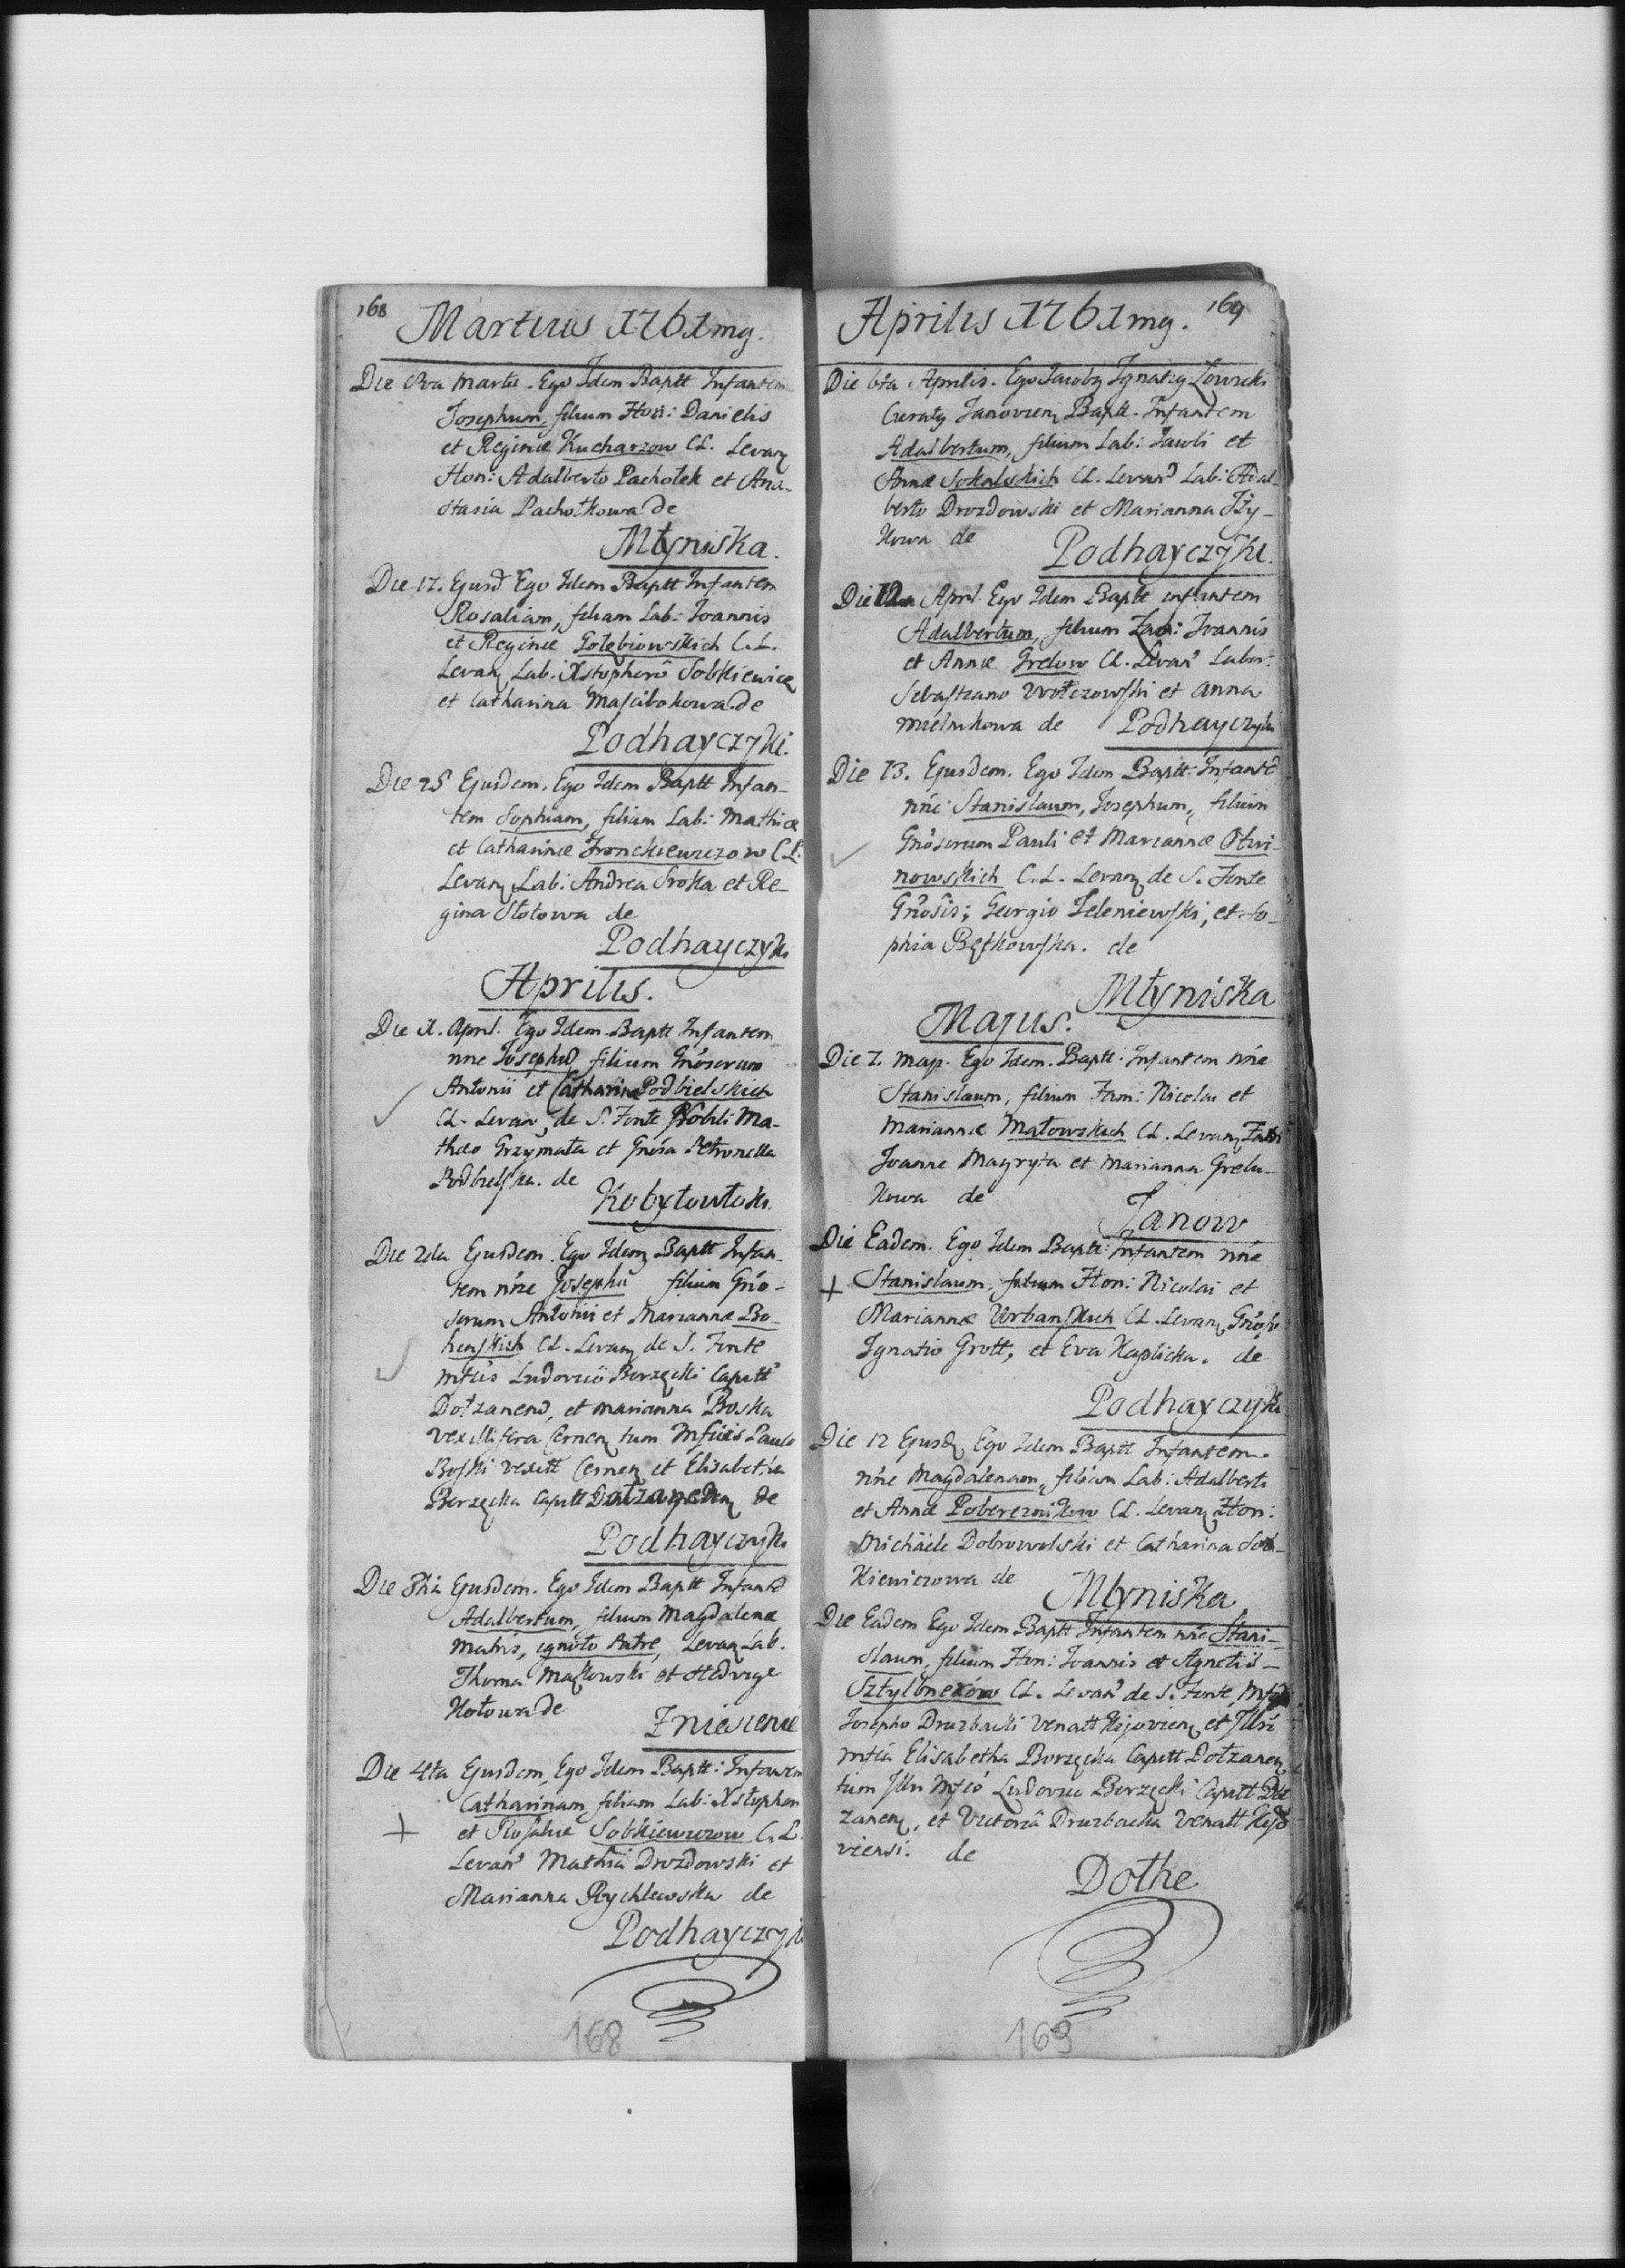 168
Martius 1761mg.
Die 8va Martii. Ego Idem Baptt Infantem
Josephum, filium Hon: Danielis
et Reginæ Kucharzow CL. Levaꝝ
Hon: Adalberto Pachołek et Ana-
stasia Pachołkowa de
Młyniska.
Die 17. Ejusd Ego Idem Baptt Infantem
Rosaliam, filiam Lab: Joannis
et Reginæ Gołębiowskich C.L.
Levaꝝ Lab: Xstophoro Sobkiewicz
et Catharina Mascibokowa de
Podhayczyki.
Die 25 Ejusdem. Ego Idem Baptt Infan-
tem Sophiam, filiam Lab: Mathiæ
et Catharinæ Fronckiewiczow CL.
Levaꝝ Lab: Andrea Sroka et Re-
gina Słotowa de
Podhayczyki
Aprilis.
Die 1. Apri. Ego Idem Baptt Infantem
nne Josephū filium Gnosorum
Antonii et Catharinæ Podbielskich
CL. Levaꝝ de S. Fonte Nobli Ma-
theo Grzymała et Gnosa Petronella
Podbielska. de
Kobyłowłoki.
Die 2da Ejusdem. Ego Idem Baptt Infan-
tem nne Josephū filium Gno-
sorum Antonii et Mariannæ Bo-
henskich CL. Levaꝝ de S. Fonte
Mfcis Ludovico Borzęcki Capitt
Dołzanen, et Marianna Boska
Vexillifera Cernen tum Mfcis Paulo
Boski Vexitt Cernen et Elisabetha
Borzęcka Capitt Dołzanen de
Podhayczyki
Die 3tia Ejusdem. Ego Idem Baptt Infantē
Adalbertum, filium Magdalenæ
Matris, ignoto Patre, Levaꝝ Lab.
Thoma Mazłowski et Hedvige
Kotowa de
Zniesienie
Die 4ta Ejusdem, Ego Idem Baptt: Infantem
Catharinam filiam Lab: Xstophori
et Rosaliæ Sobkiewiczow C.L.
Levan Mathia Drozdowski et
Marianna Rychlewska de
Podhayczyki
168
Aprilis 1761mg.
169
Die 6ta Aprilis. Ego Jacobꝰ Ignatiꝰ Łowicki
Curatꝰ Janovienꝰ Baptt. Infantem
Adalbertum, filium Lab: Pauli et
Annæ Sokalskich CL. Levan Lab: Adal-
berto Drozdowski et Marianna
kowa de
Podhayczyki.
Die 12a Apri. Ego Idem Baptt infantem
Adalbertum, filium Lab: Joannis
et Annæ Grelow CL. Levan Labor:
Sebastiano Wołczowski et Anna
Mielnikowa de Podhayczyki
Die 13. Ejusdem. Ego Idem Baptt: Infantē
nne Stanislaum, Josephum, filium
Gnosorum Pauli et Mariannæ Otwi-
nowskich C.L. Levaꝝ de S. Fonte
Gnosis; Georgio Zeleniewski, et So-
phia Bętkowska. de
Młyniska
Majus.
Die 7. Maji. Ego Idem. Baptt. Infantem nne
Stanislaum, filium Fam: Nicolai et
Mariannæ Małowskich CL. Levaꝝ Fam
Joanne Magryta et Marianna Grelu-
kowa de
Janow
Die Eadem. Ego Idem Baptt: Infantem nne
Stanislaum, filium Hon: Nicolai et
Mariannæ Urbanskich CL. Levaꝝ Gnoso
Ignatio Grott, et Eva Kaplicka. de
Podhayczyki
Die 12 Ejusd, Ego Idem Baptt Infantem
nne Magdalenam, filiam Lab: Adalberti
et Annæ Pobereznikow CL. Levaꝝ Hon:
Michäele Dobrowolski et Catharina Sob-
kiewiczowa de
Młyniska
Die Eadem Ego Idem Baptt Infantem nne Stani-
slaum, filium Hon: Joannis et Agnetis
Sztylbnerow CL. Levan de S. Fonte, Mfco
Josepho Druzbacki Venatt Kijovien et Illri
Mfca Elisabetha Borzęcka Capitt Dołzanen
tum Illri Mfco Ludovico Borzęcki Capitt Doł
zanen, et Victoria Druzbacka Venatt Kijo
viensi. de
Dołhe
169